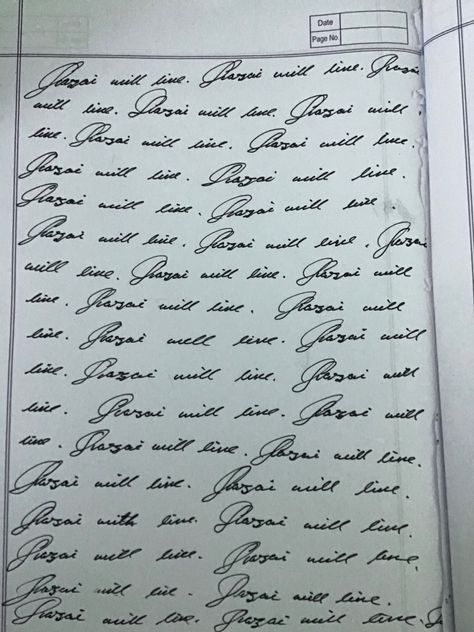 Date
Page No.
Dazai will live. Dazai will live. Dazai
will live. Dazai will live. Dazai will
live. Dazai will live. Dazai will live.
Dazai will live. Dazai will live.
Dazai will live. Dazai will live
Dazai will live. Dazai will live. Dazai
will live. Dazai will live. Dazai will
live. Dazai will live. Dazai will
live. Dazai well live. Dazai will
live. Dazai will live. Dazai will
live. Dazai will live. Dazai will
live. Dazai will live. Dazai will live.
Dazai will live. Dazai will live.
Dazai with live. Dazai will live.
Dazai will live. Dazai will live.
Dazai will live. Dazai will live.
Dazai will live. Dazai will live.